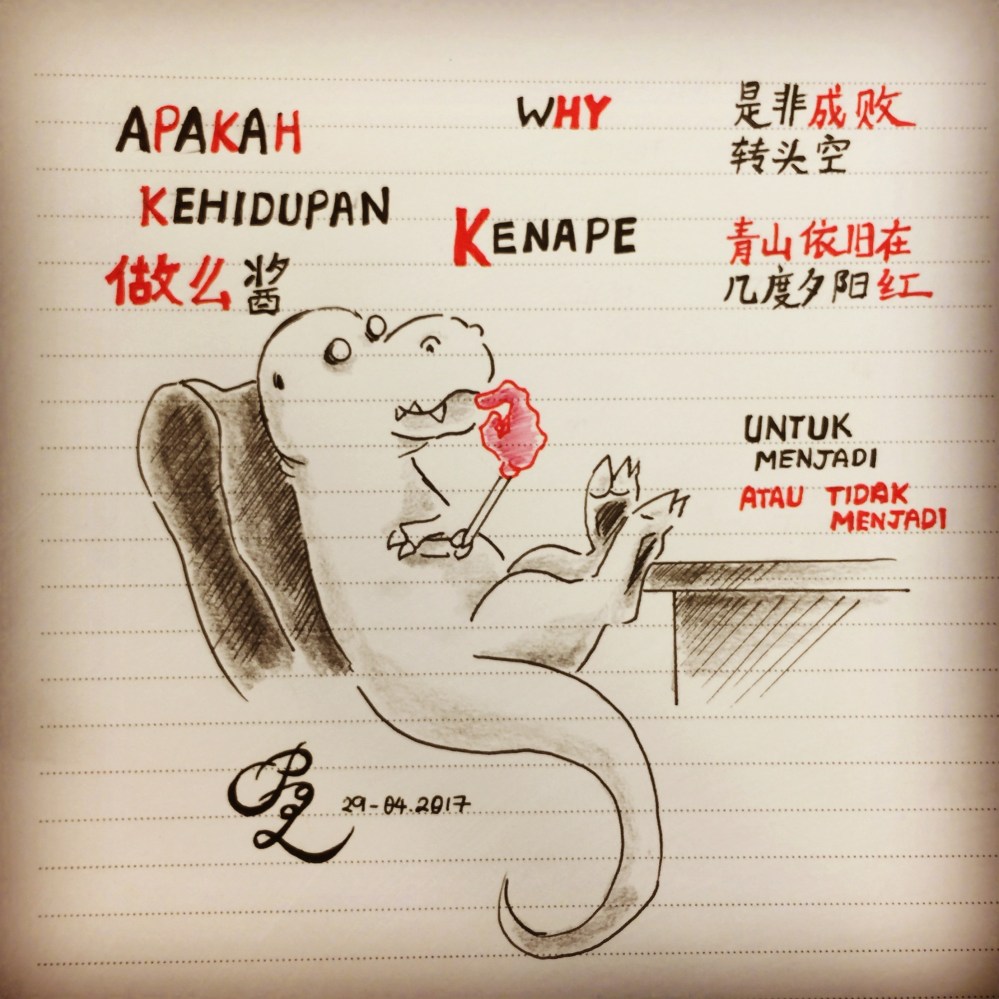 APAKAH
KEHIDUPAN
做么酱
WHY
KENAPE
是非成败
转头空
青山依旧在
几度夕阳红
UNTUK
MENJADI
ATAU TIDAK
MENJADI
29-04.2017